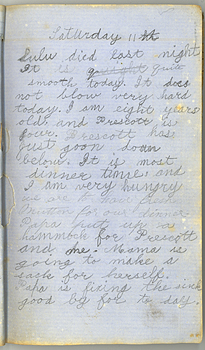 Saturday 11th
Lulu died last night
It is quite
smooth today. It does
not blow very hard
today. I am eight years
old and Prescott is
four. Prescott has
just goon down
below. It is most
dinner time, and
I am very hungry
we are to have
mutton for our dinner
Papa put up a
hammock for Prescott
and me. Mama is
going to make a
sack for herself.
Papa is fixing the sink
good by for to day.